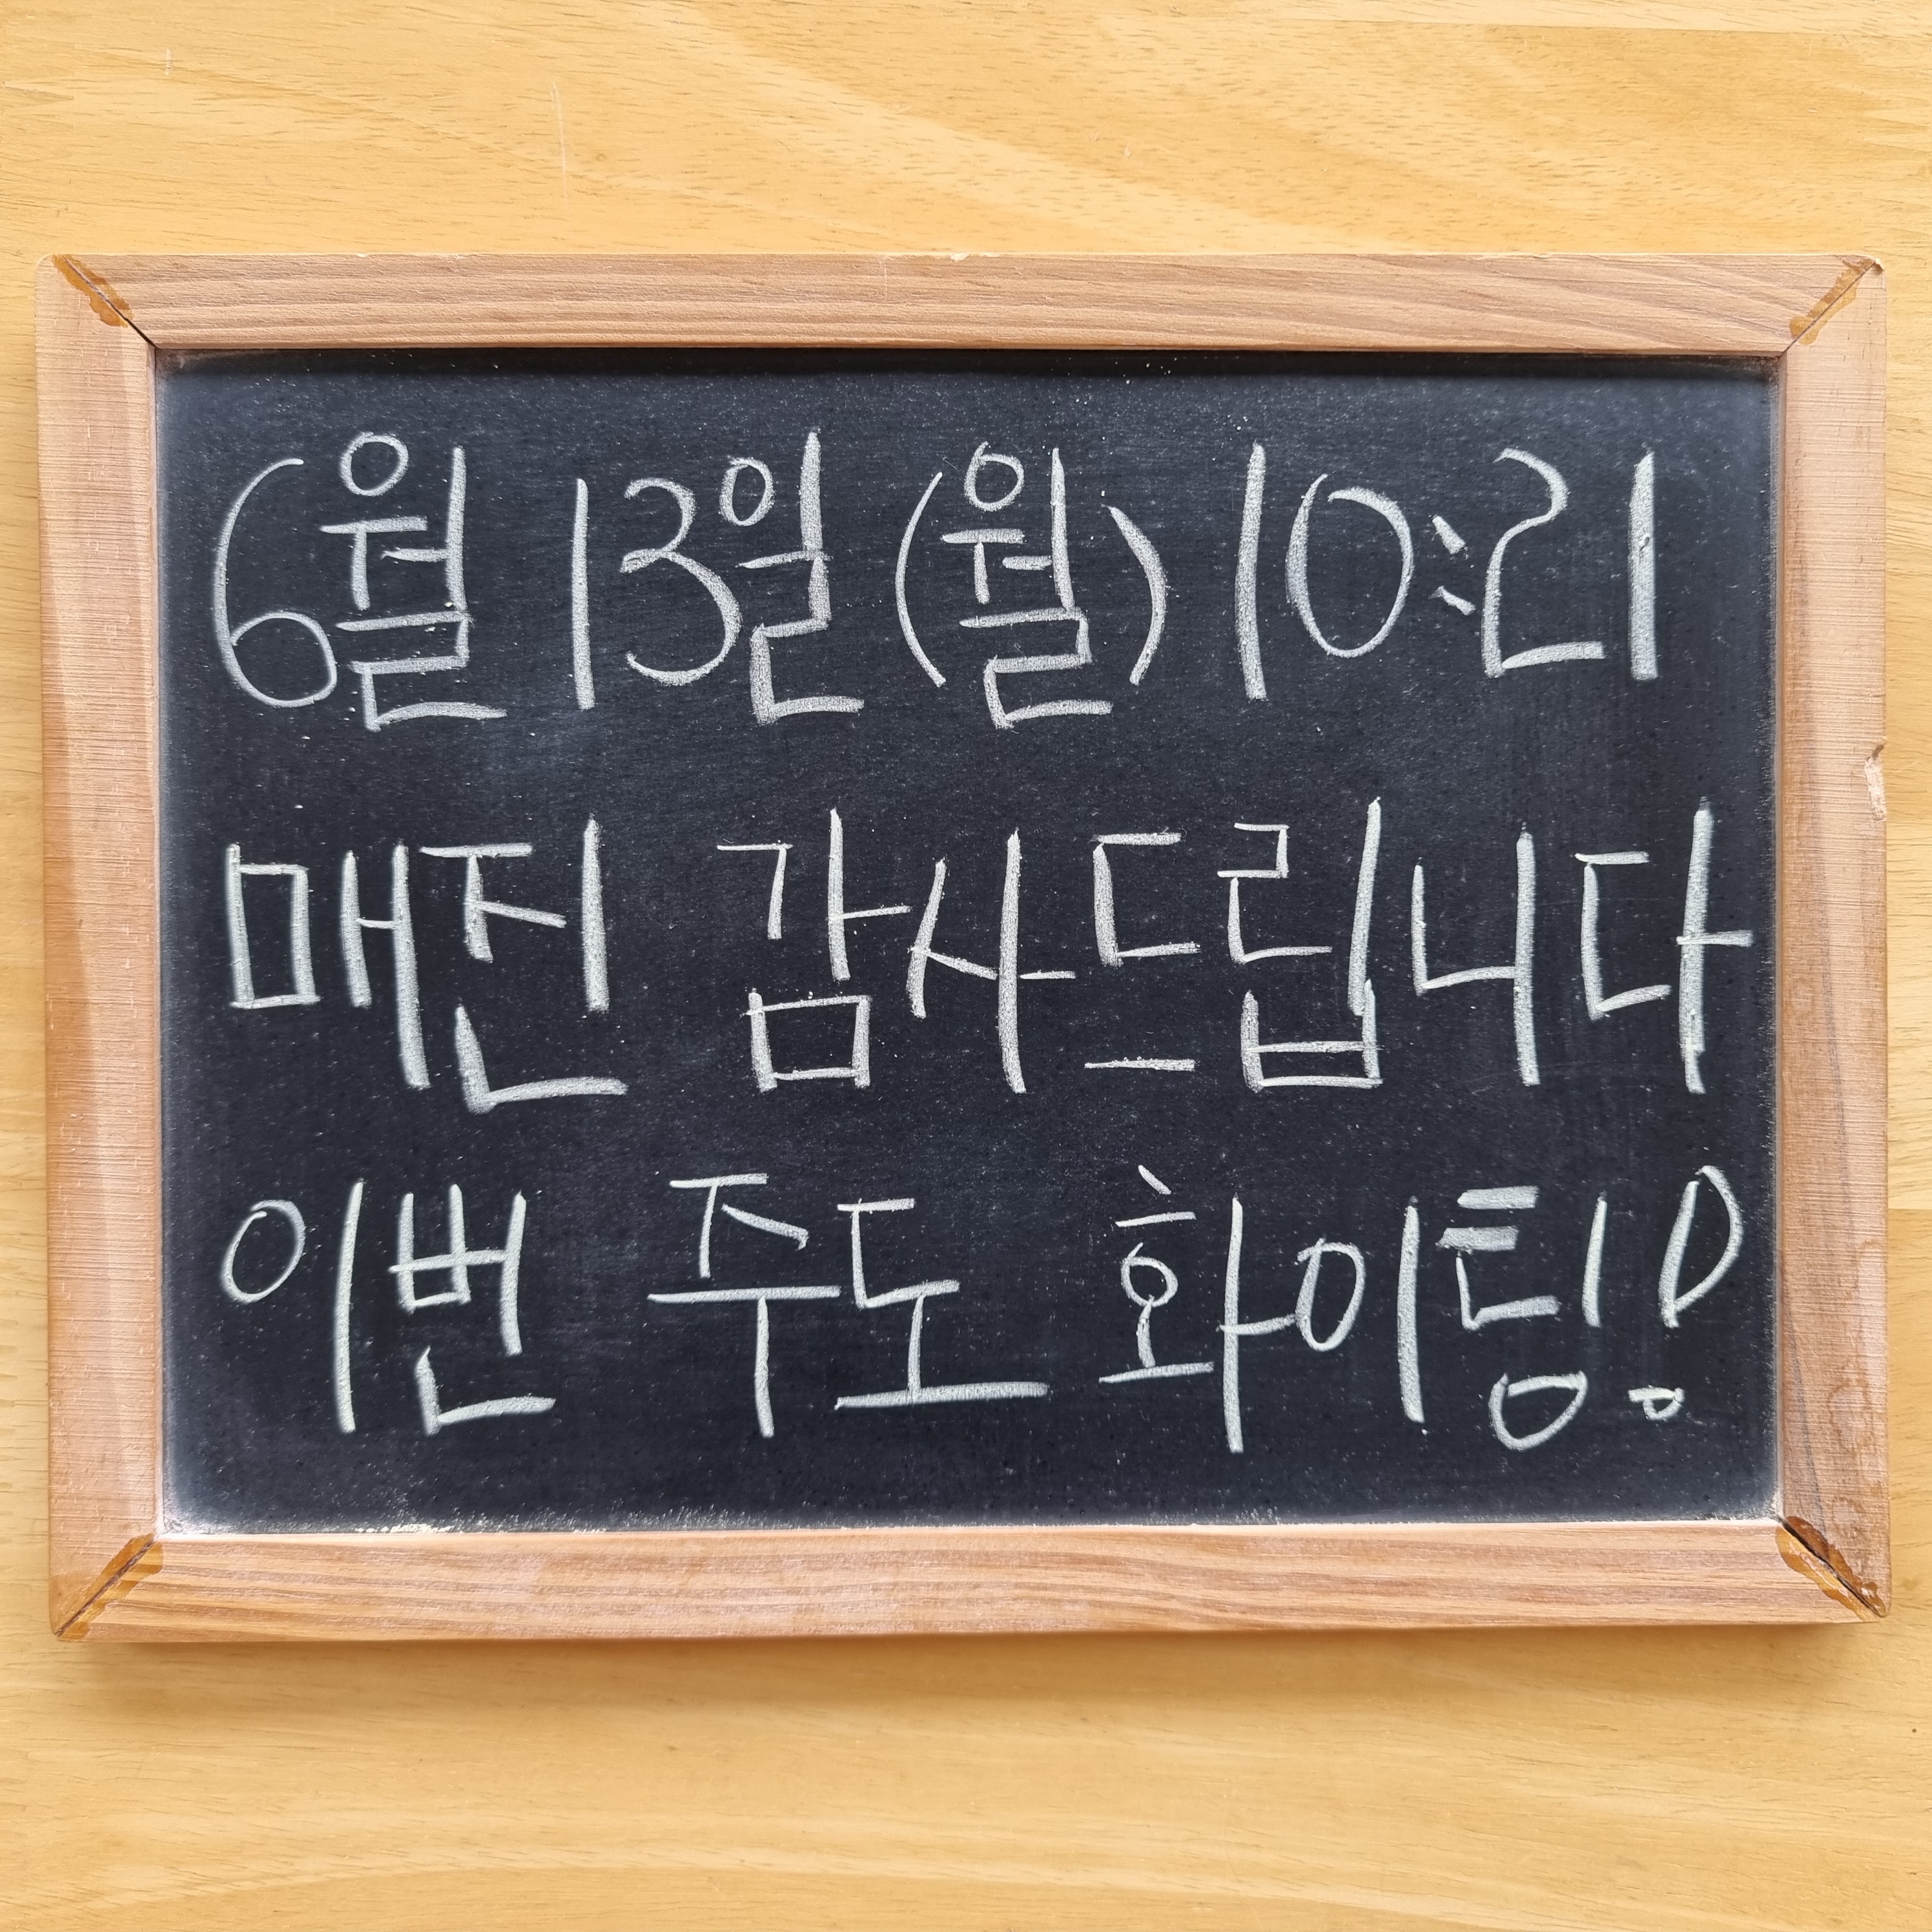 6월 13일 (월) 10:21
매진 감사드립니다
이번 주도 화이팅!